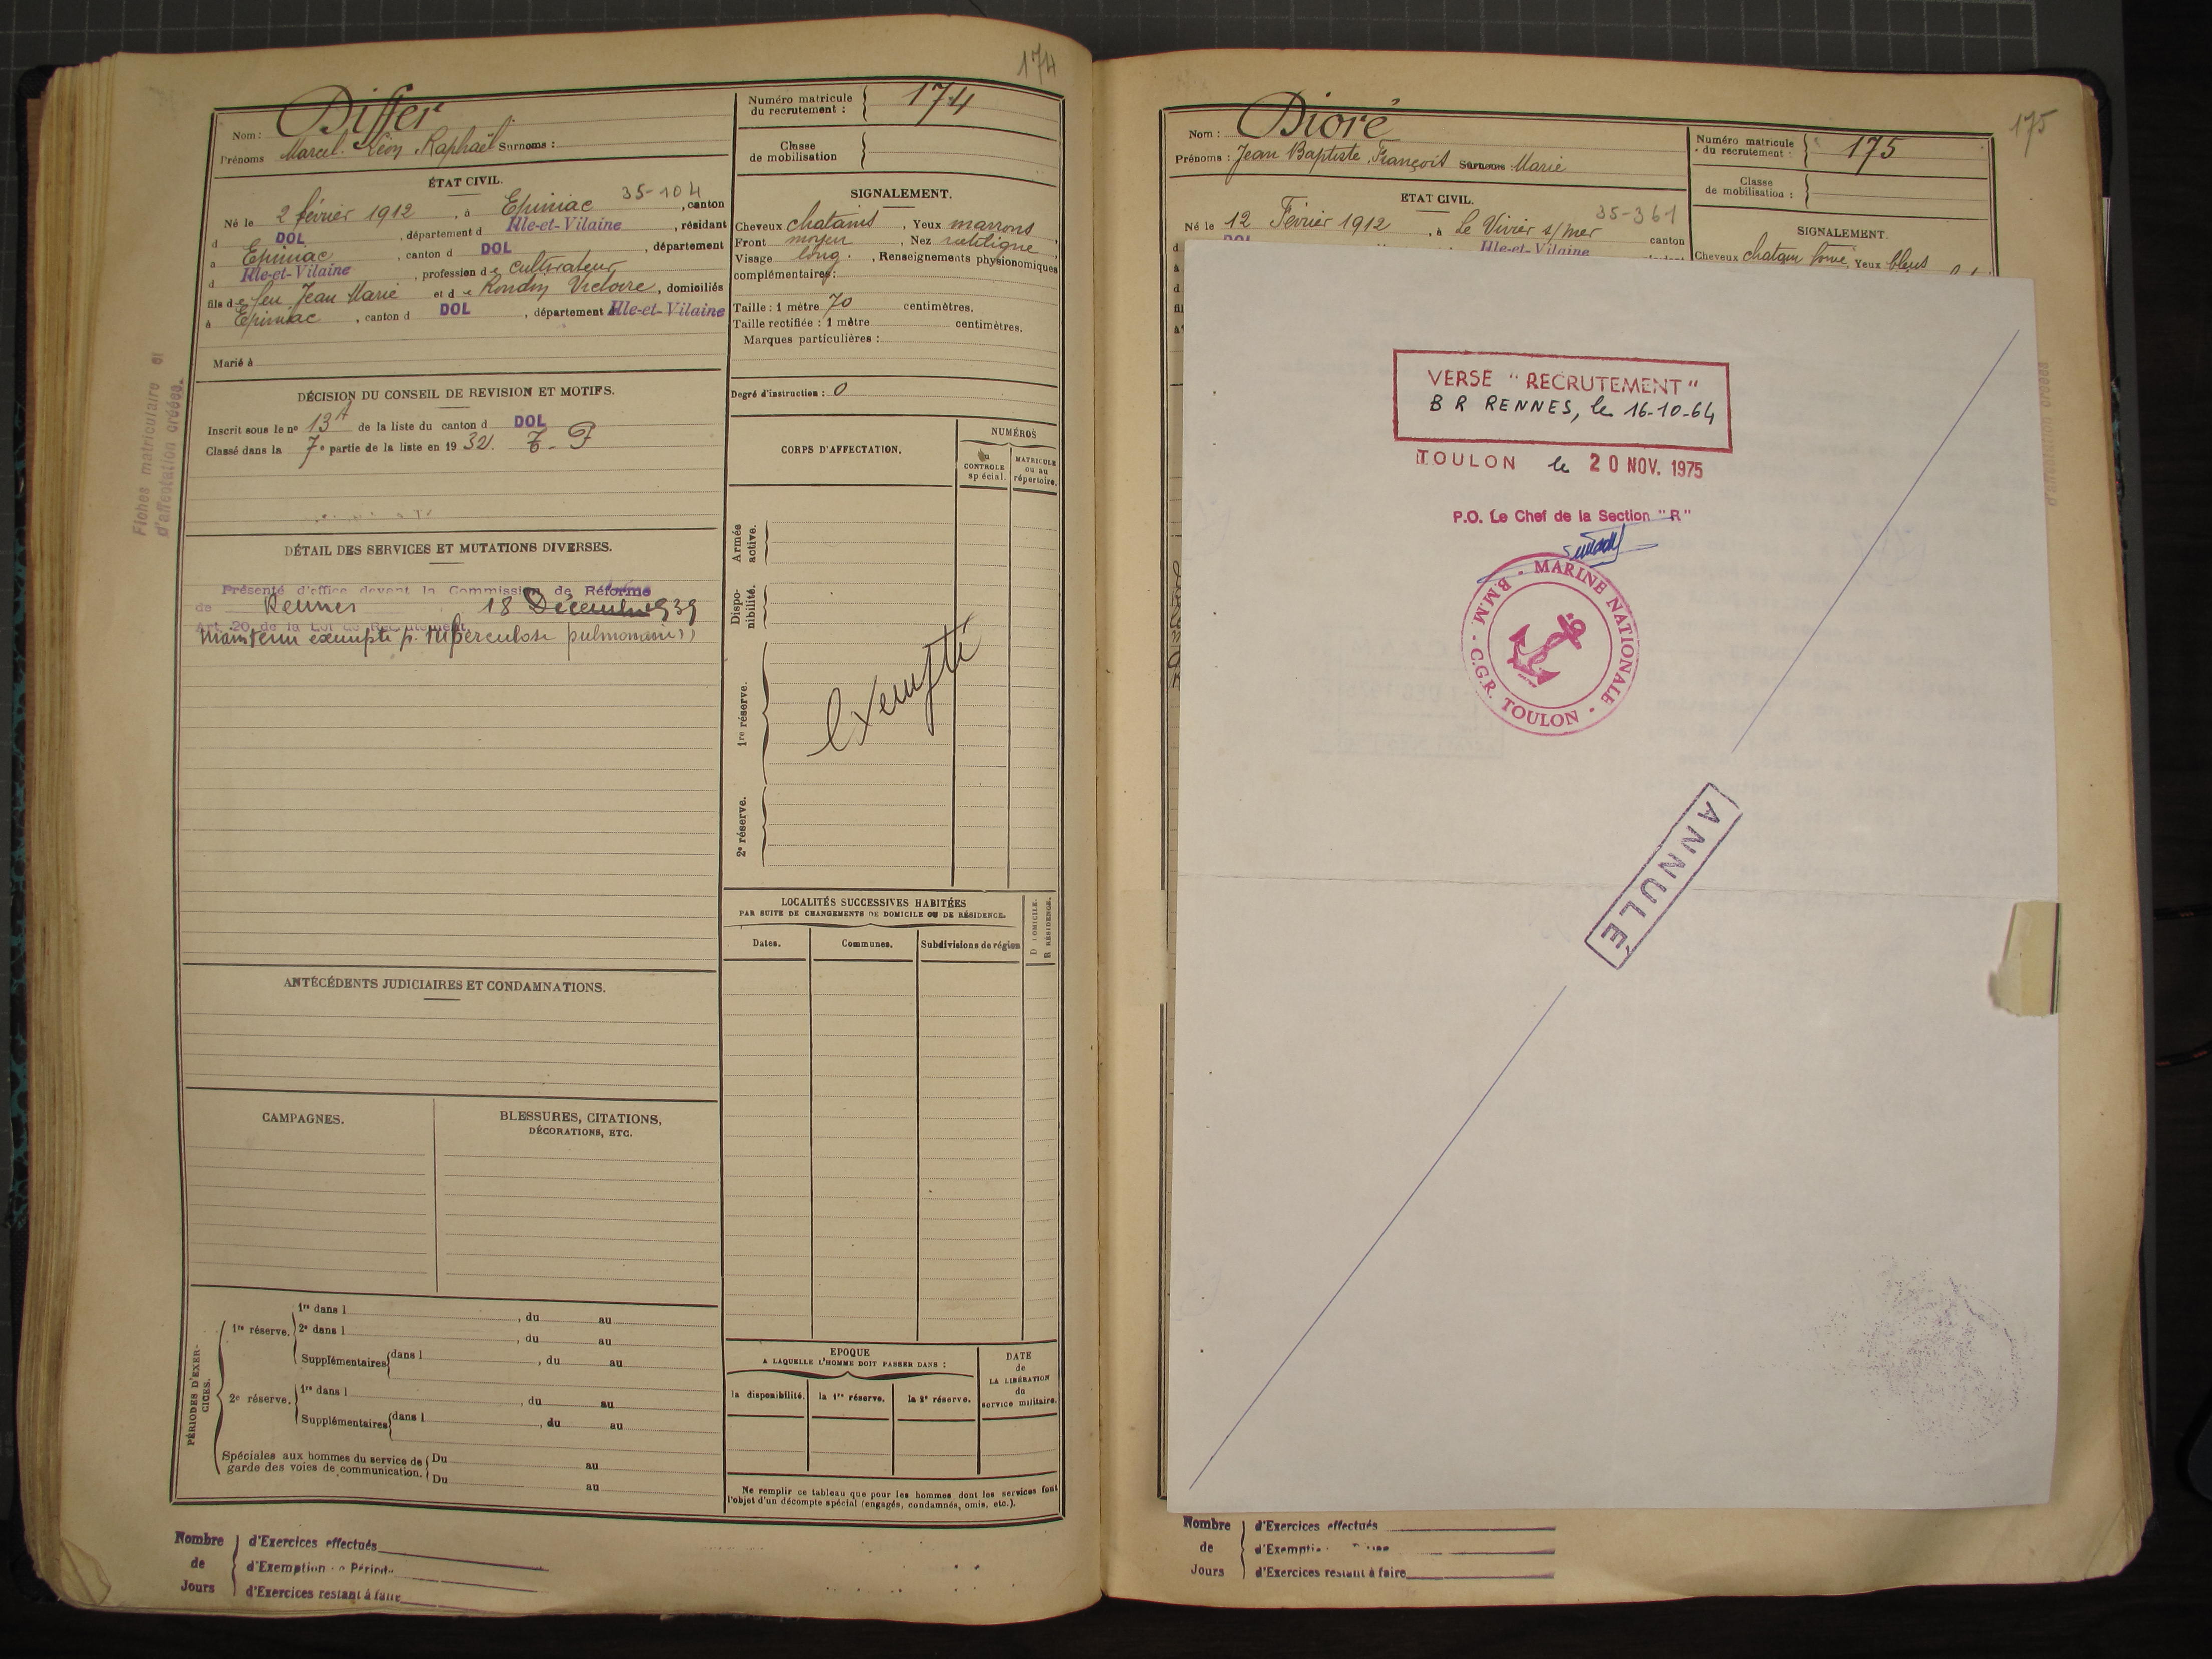 174
Nom : Differ
Prénoms Marcel Léon Raphaël Surnoms :
Numéro matricule du recrutement : 174
Classe de mobilisation
ÉTAT CIVIL.
35-104
Né le 2 février 1912, à Epiniac, canton
d DOL, département d Ille-et-Vilaine, résidant
à Epiniac, canton d DOL, département
d Ille-et-Vilaine, profession de cultivateur
fils de feu Jean Marie et de Rondin Victoire, domiciliés
à Epiniac, canton d DOL, département Ille-et-Vilaine
Marié à
SIGNALEMENT.
Cheveux chatains, Yeux marrons,
Front moyen, Nez rectiligne,
Visage long, Renseignements physionomiques
complémentaires:
Taille : 1 mètre 70 centimètres.
Taille rectifiée : 1 mètre centimètres.
Marques particulières :
Degré d'instruction : 0
Fiches matriculaire et
d'affectation créées.
DÉCISION DU CONSEIL DE REVISION ET MOTIFS.
Inscrit sous le nº 13A de la liste du canton d DOL
Classé dans la 7e partie de la liste en 1932.
DÉTAIL DES SERVICES ET MUTATIONS DIVERSES.
Présenté d'office devant la Commission de Réforme
de Rennes 18 Décembre 1939
Art. 20 de la Loi de Recrutement
Maintenu exempté p. tuberculose pulmonaire
CORPS D'AFFECTATION.
NUMÉROS
au CONTROLE spécial.
MATRICULE ou au répertoire.
Armée active.
Disponibilité.
1re réserve.
2e réserve.
Exempté
LOCALITÉS SUCCESSIVES HABITÉES
PAR SUITE DE CHANGEMENTS DE DOMICILE OU DE RÉSIDENCE.
Dates.
Communes.
Subdivisions de région
D DOMICILE.
R RÉSIDENCE.
ANTÉCÉDENTS JUDICIAIRES ET CONDAMNATIONS.
CAMPAGNES.
BLESSURES, CITATIONS,
DÉCORATIONS, ETC.
PÉRIODES D'EXERCICES.
1re réserve.
1re dans l , du au
2e dans l , du au
Supplémentaires dans l , du au
2e réserve.
1re dans l , du au
Supplémentaires dans l , du au
Spéciales aux hommes du service de garde des voies de communication.
Du au
Du au
EPOQUE
A LAQUELLE L'HOMME DOIT PASSER DANS :
la disponibilité.
la 1re réserve.
la 2e réserve.
DATE
de
LA LIBÉRATION
du
service militaire.
Ne remplir ce tableau que pour les hommes dont les services font
l'objet d'un décompte spécial (engagés, condamnés, omis, etc.).
Nombre de Jours
d'Exercices effectués
d'Exemption de Période
d'Exercices restant à faire
175
Nom : Dioré
Prénoms : Jean Baptiste François Surnoms Marie
Numéro matricule du recrutement : 175
Classe de mobilisation :
ETAT CIVIL.
35-361
Né le 12 Février 1912, à Le Vivier s/mer canton
Ille-et-Vilaine
SIGNALEMENT.
Cheveux chatain foncé, Yeux bleus
VERSE "RECRUTEMENT"
B R RENNES, le 16-10-64
TOULON le 20 NOV. 1975
P.O. Le Chef de la Section "R"
MARINE NATIONALE
B.M.M. - C.G.R. TOULON
ANNULÉ
Nombre de Jours
d'Exercices effectués
d'Exempti
d'Exercices restant à faire